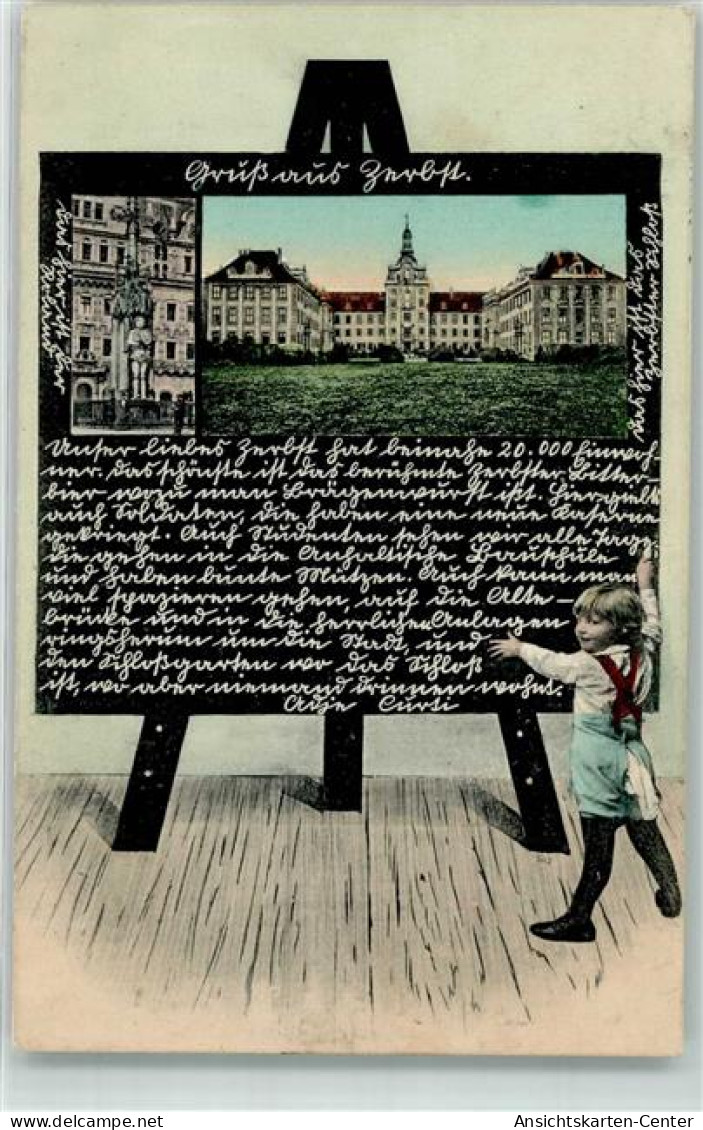 Gruß aus Zerbst.
Und hier ist der
Roland
Das hier ist das
Zerbster Schloß
Unser liebes Zerbst hat beinahe 20.000 Einwoh-
ner. das schönste ist das berühmte Zerbster Bitter-
bier wozu man Brägenwurst ißt. Hier gielts
auch Soldaten, die haben eine neue Kaserne
gekriegt. Auch Studenten sehen wir alle Tage,
die gehen in die Anhaltische Bauschule
und haben bunte Mützen. Auch kann man
viel spazieren gehen, auf die Alte-
brücke und in die herrlichen Anlagen
ringsherum um die Stadt, und
den Schloßgarten wo das Schloß
ist, wo aber niemand drinnen wohnt.
Adje Curti
Ansichtskarten-Center